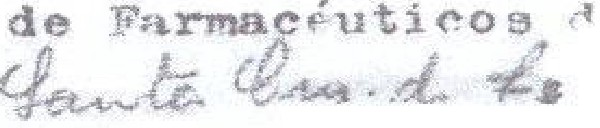 de Farmacéuticos d
Santa Cru. d. Te